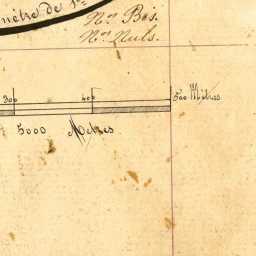 mètre de 1re
Nos Bis.
Nos Nuls.
300 400 500 Mètres
5000 Mètres